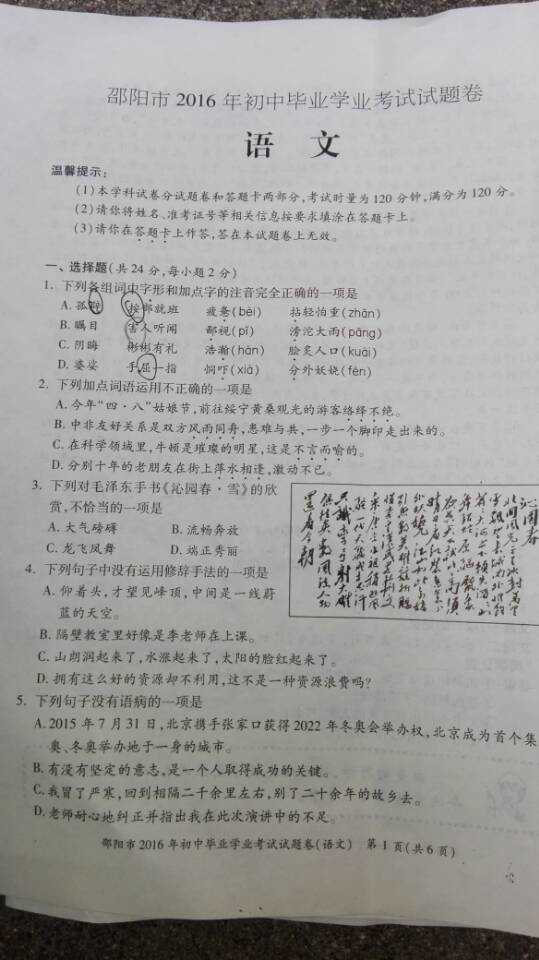 邵阳市2016年初中毕业学业考试试题卷
语 文
温馨提示：
(1)本学科试卷分试题卷和答题卡两部分,考试时量为120分钟,满分为120分。
(2)请你将姓名、准考证号等相关信息按要求填涂在答题卡上。
(3)请你在答题卡上作答,答在本试题卷上无效。
一、选择题(共24分,每小题2分)
1. 下列各组词中字形和加点字的注音完全正确的一项是
A. 孤辟 按部就班 疲惫(bèi) 拈轻怕重(zhān)
B. 瞩目 害人听闻 鄙视(pǐ) 滂沱大雨(pāng)
C. 阴晦 彬彬有礼 浩瀚(hàn) 脍炙人口(kuài)
D. 婆娑 手屈一指 恫吓(xià) 分外妖娆(fèn)
2. 下列加点词语运用不正确的一项是
A. 今年“四·八”姑娘节,前往绥宁黄桑观光的游客络绎不绝。
B. 中非友好关系是双方风雨同舟,患难与共,一步一个脚印走出来的。
C. 在科学领域里,牛顿是璀璨的明星,这是不言而喻的。
D. 分别十年的老朋友在街上萍水相逢,激动不已。
3. 下列对毛泽东手书《沁园春·雪》的欣
赏,不恰当的一项是
A. 大气磅礴 B. 流畅奔放
C. 龙飞凤舞 D. 端正秀丽
沁园春
4. 下列句子中没有运用修辞手法的一项是
A. 仰着头,才望见峰顶,中间是一线蔚
蓝的天空。
B. 隔壁教室里好像是李老师在上课。
C. 山朗润起来了,水涨起来了,太阳的脸红起来了。
D. 拥有这么好的资源却不利用,这不是一种资源浪费吗?
5. 下列句子没有语病的一项是
A. 2015年7月31日,北京携手张家口获得2022年冬奥会举办权,北京成为首个集
奥、冬奥举办地于一身的城市。
B. 有没有坚定的意志,是一个人取得成功的关键。
C. 我冒了严寒,回到相隔二千余里左右,别了二十余年的故乡去。
D. 老师耐心地纠正并指出我在此次演讲中的不足。
邵阳市2016年初中毕业学业考试试题卷(语文) 第1页(共6页)